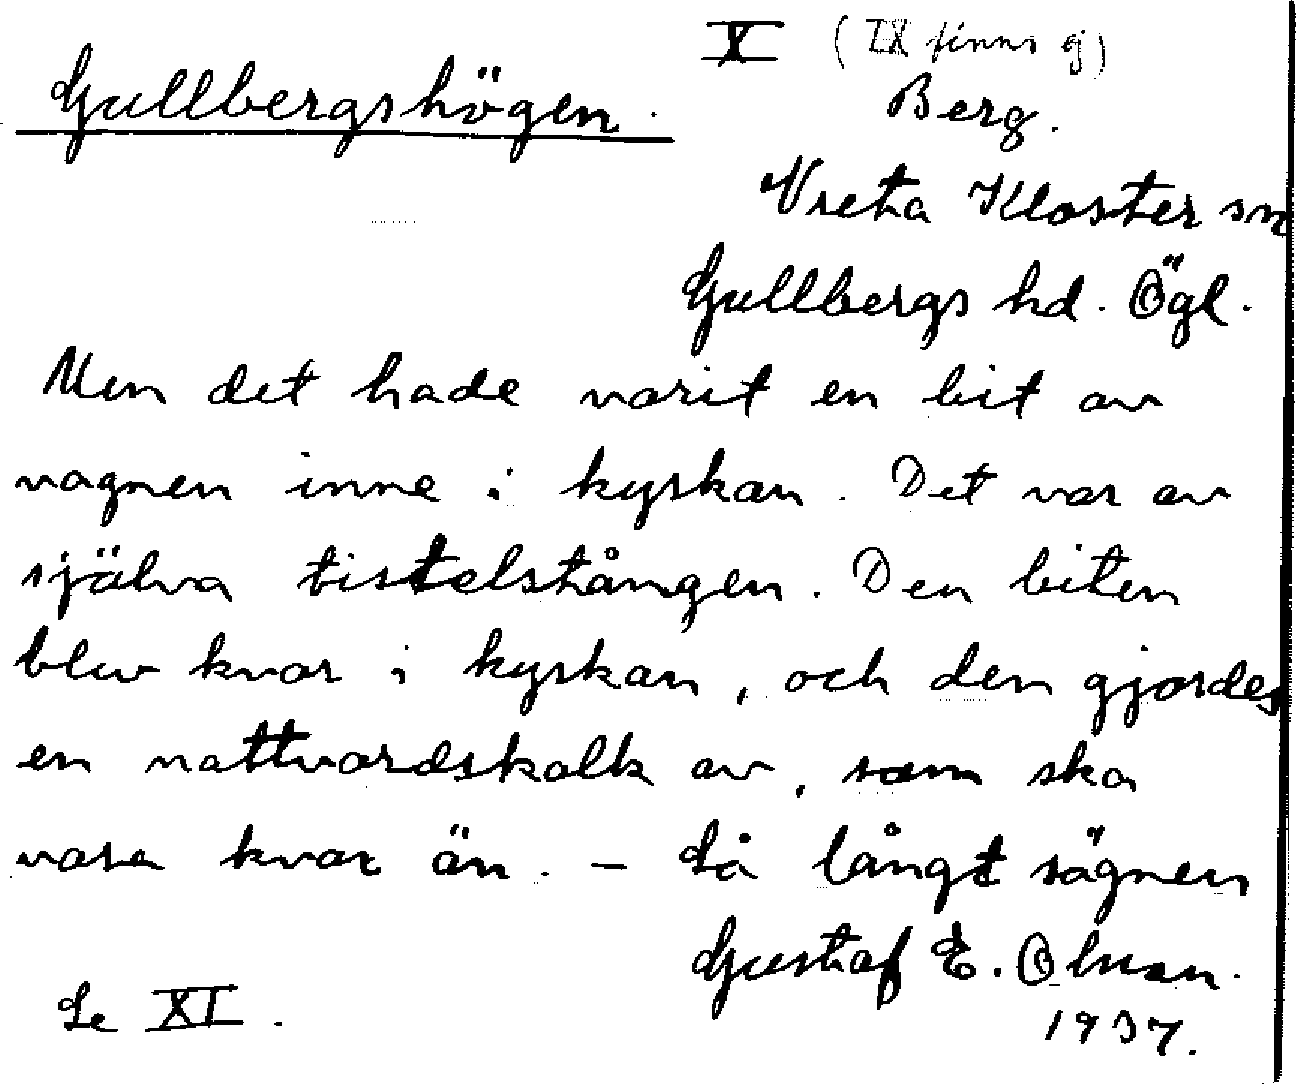 X (IX finns ej)
Gullbergshögen.
Berg.
Vreta Kloster sn
Gullbergs hd. Ögl.
Men det hade varit en bit av
vagnen inne i kyrkan. Det var av
själva tistelstången. Den biten
blev kvar i kyrkan, och den gjordes
en nattvardskalk av, som ska
vara kvar än. – Så långt sägnen
Gustaf E. Olsson.
Se XI.
1937.